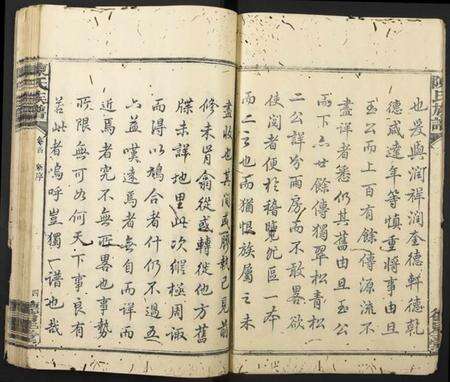 也爰與潤祥潤奎德軒德乾
德咸達年等慎重將事由且
玉公而上百有餘傳源流不
盡詳者悉仍其舊由且玉公
而下六廿餘傳獨翠松青松
二公詳分两房而不敢畧欲
使閲者便於稽覽允區一本
而二之也而猶恨族屬之未
盡收也其间或膠執己見前
修未肯翕從或轉徙他方舊
牒未詳地里此次縱極周諏
而得以鳩合者什仍不過五
六益嘆遠焉者無自而詳而
近焉者究不無所畧也事勢
所限無可如何天下事良有
若此者嗚呼豈獨一譜也哉
陳氏族譜
卷首 參序
四